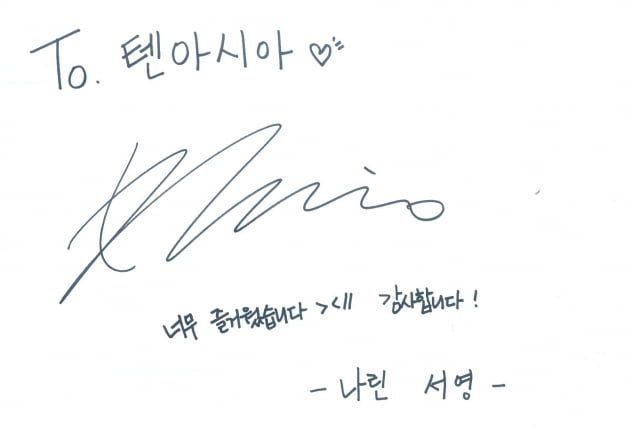 To. 텐아시아 ♡
너무 즐거웠습니다 >< !! 감사합니다!
- 나린 서영 -